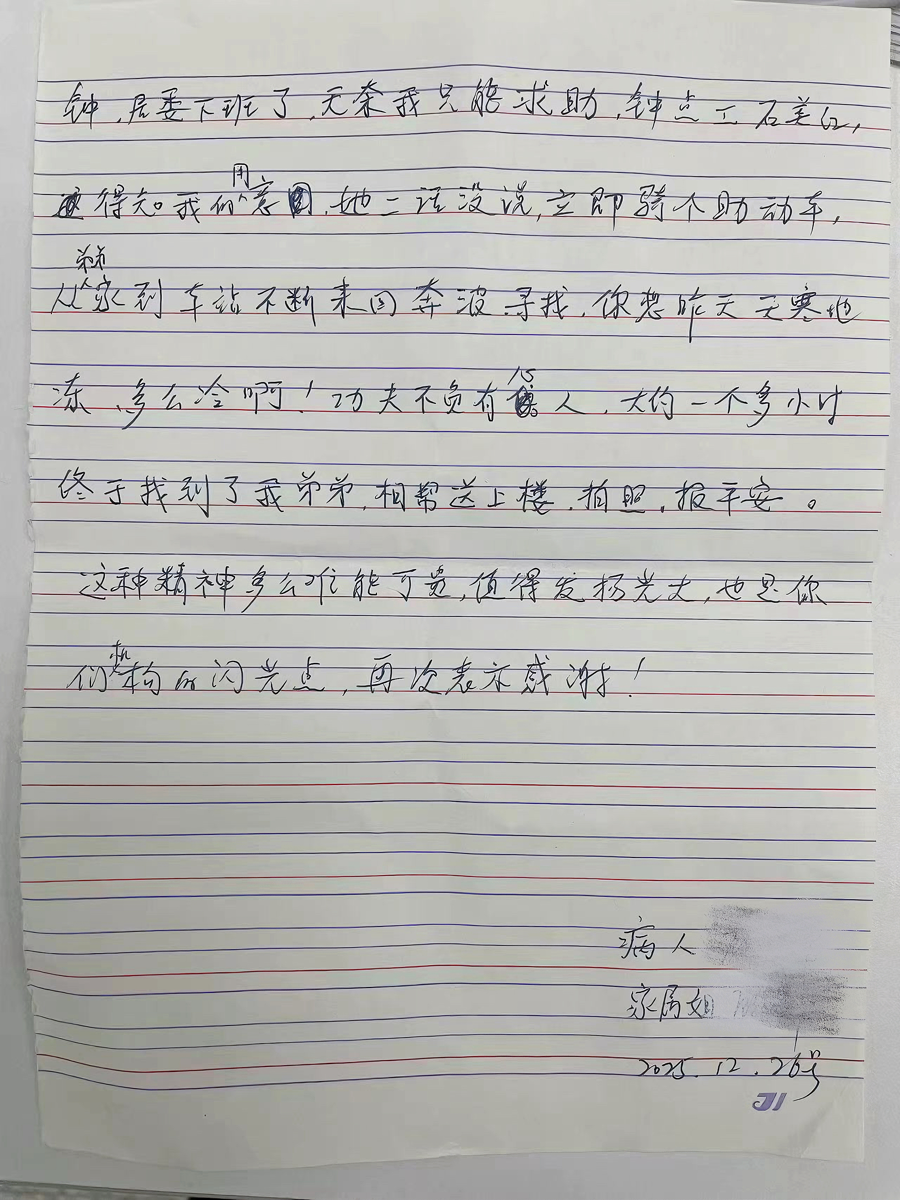 钟，居委下班了，无奈我只能求助，钟点工石美红，
得知我们用意，她二话没说，立即骑个助动车，
从弟弟家到车站不断来回奔波寻找，你想昨天天寒地
冻，多么冷啊！功夫不负有心人，大约一个多小时
终于找到了我弟弟，相帮送上楼，拍照，报平安。
这种精神多么难能可贵，值得发扬光大，也是你
们机构的闪光点，再次表示感谢！
病人
家属姐
2025.12.26号